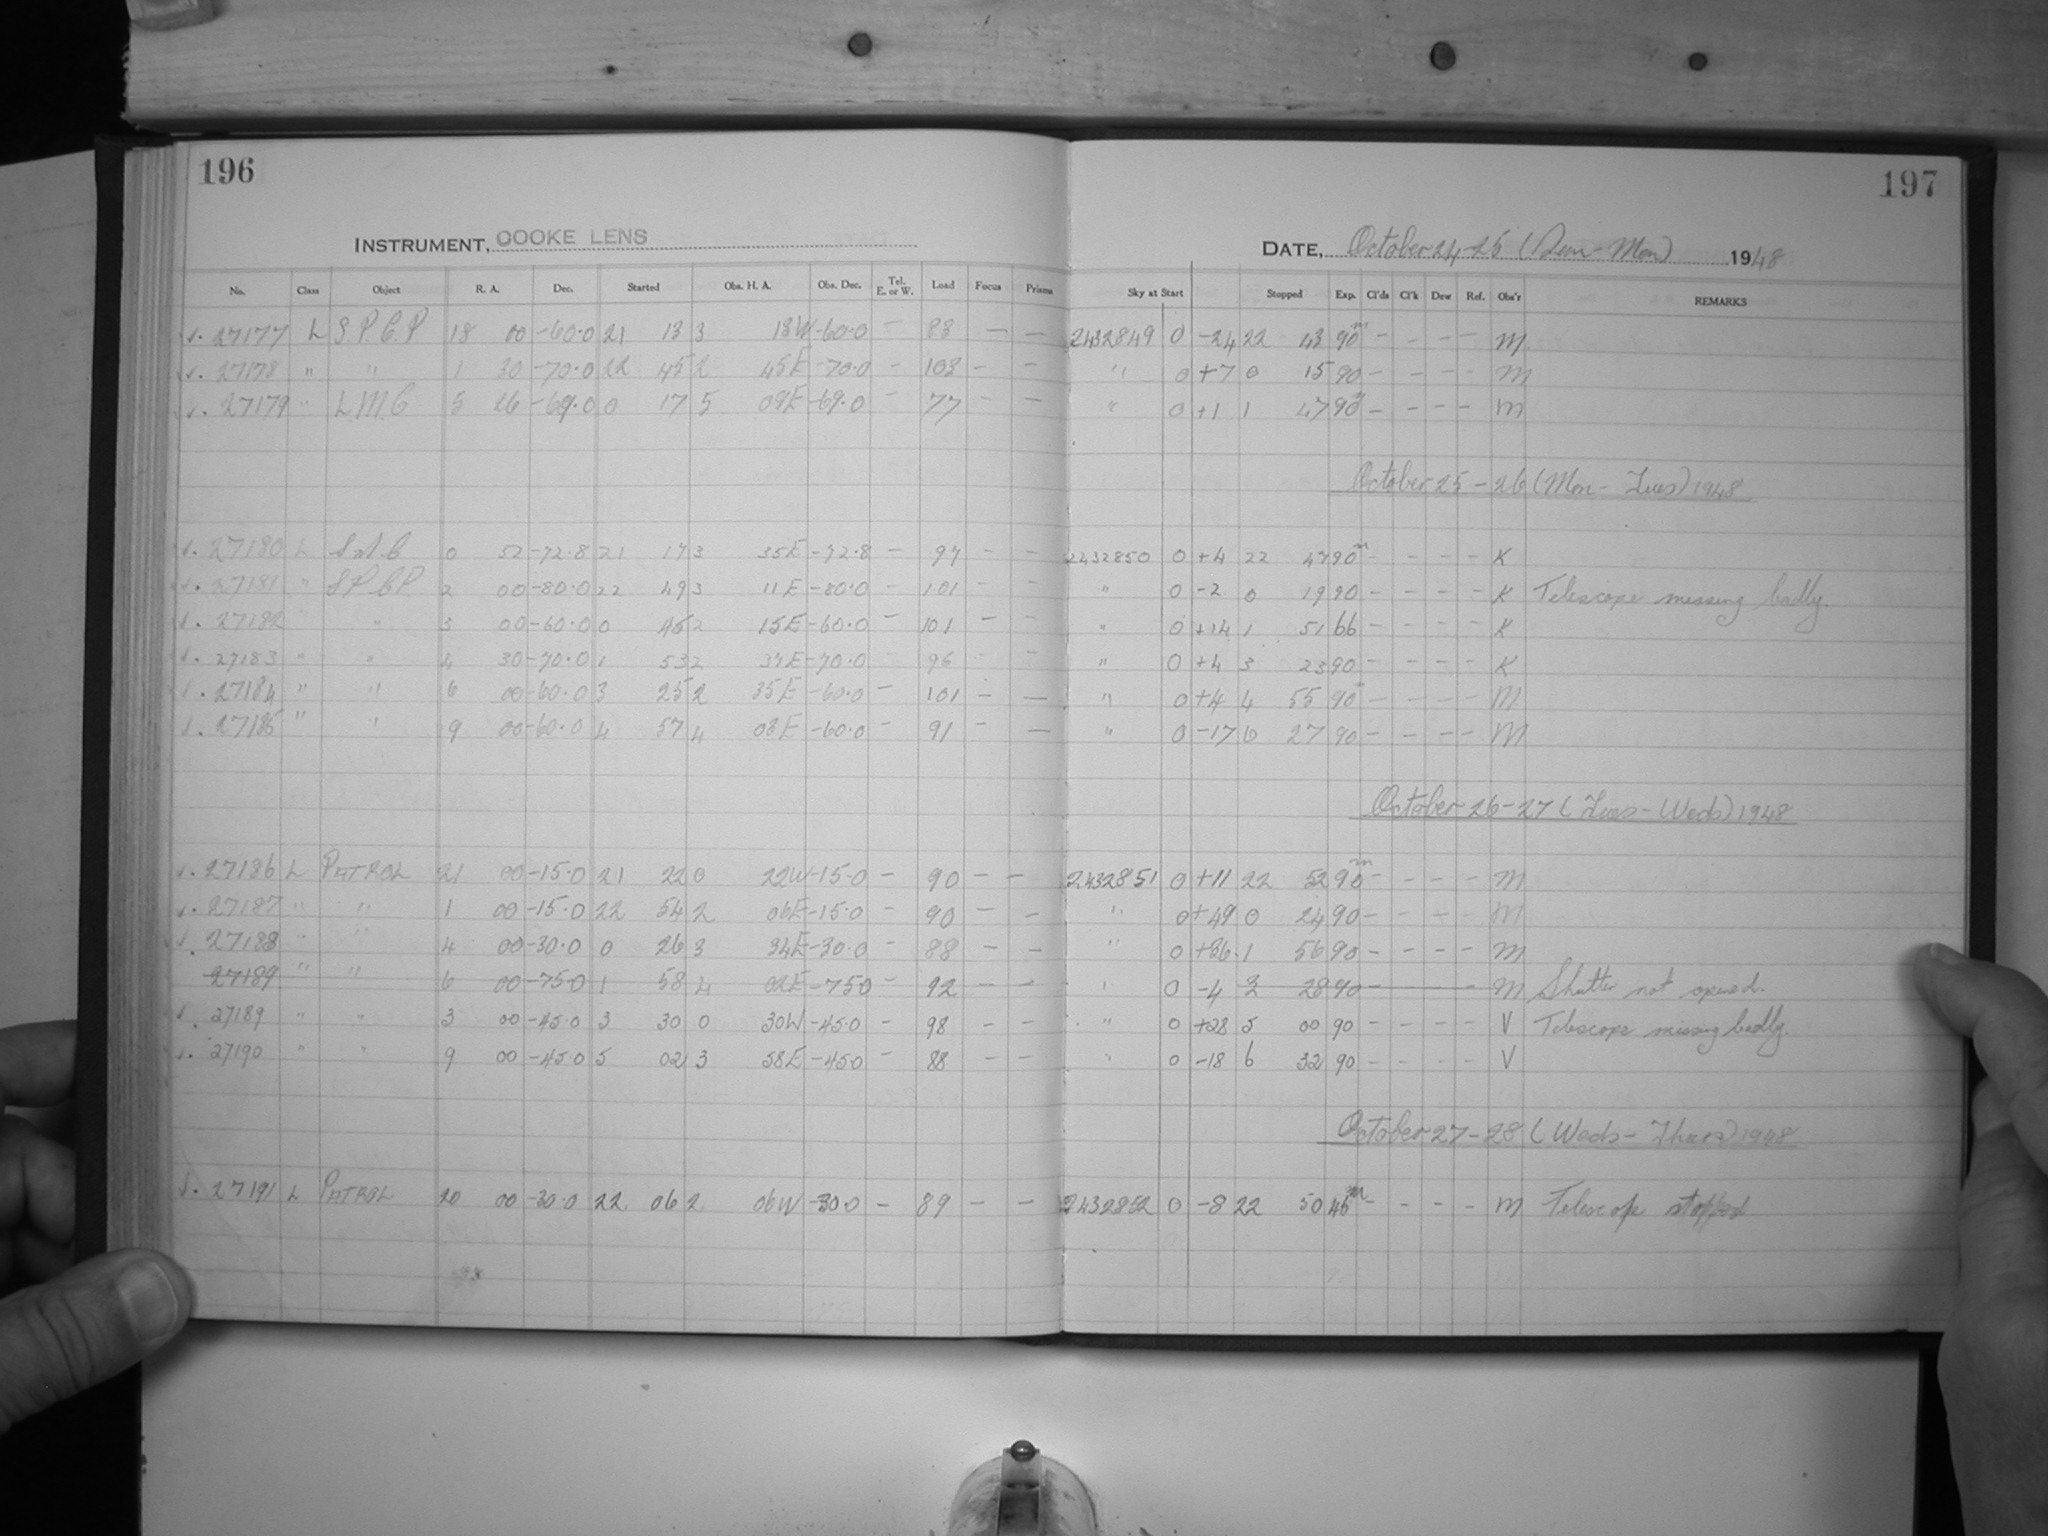 196
197
INSTRUMENT, COOKE LENS
DATE, October 24-25 (Sun-Mon) 1948
No. Class Object R. A. Dec. Started Obs. H. A. Obs. Dec. Tel. E. or W. Load Focus Prisms Sky at Start Stopped Exp. Cl'ds Cl'k Dew Ref. Obs'r REMARKS
27177 L S.P.C.P 18 00 -60.0 21 13 3 18W -60.0 - 83 - - 2432849 0 -24 22 43 90m - - - - M
27178 " " 1 30 -70.0 22 45 2 45E -70.0 - 103 - - " 0 +7 0 15 90 - - - - M
27179 " LMC 5 26 -69.0 0 17 5 09E -69.0 - 77 - - " 0 +1 1 47 90 - - - - M
October 25-26 (Mon-Tues) 1948
27180 L SMC 0 52 -72.8 21 17 3 35E -72.8 - 97 - - 2432850 0 +4 22 47 90m - - - - K
27181 " SPCP. 2 00 -80.0 22 49 3 11E -80.0 - 101 - - " 0 -2 0 19 90 - - - - K Telescope missing badly.
27182 " " 3 00 -60.0 0 45 2 15E -60.0 - 101 - - " 0 +14 1 51 66 - - - - K
27183 " " 4 30 -70.0 1 53 2 37E -70.0 - 96 - - " 0 +4 3 23 90 - - - - K
27184 " " 6 00 -60.0 3 25 2 35E -60.0 - 101 - - " 0 +4 4 55 90 - - - - M
27185 " " 9 00 -60.0 4 57 4 03E -60.0 - 91 - - " 0 -17 6 27 90 - - - - M
October 26-27 (Tues-Weds) 1948
27186 L PATROL 21 00 -15.0 21 22 0 22W -15.0 - 90 - - 2432851 0 +11 22 52 90m - - - - M
27187 " " 1 00 -15.0 22 54 2 06E -15.0 - 90 - - " 0 +49 0 24 90 - - - - M
27188 " " 4 00 -30.0 0 26 3 34E -30.0 - 88 - - " 0 +36 1 56 90 - - - - M
27189 " " 6 00 -75.0 1 58 4 02E -75.0 - 92 - - " 0 -4 3 28 90 - - - - M Shutter not opened.
27189 " " 3 00 -45.0 3 30 0 30W -45.0 - 98 - - " 0 +28 5 00 90 - - - - V Telescope missing badly.
27190 " " 9 00 -45.0 5 02 3 58E -45.0 - 88 - - " 0 -18 6 32 90 - - - - V
October 27-28 (Weds-Thurs) 1948
27191 L PATROL 20 00 -30.0 22 06 2 06W -30.0 - 89 - - 2432852 0 -8 22 50 45m - - - - M Telescope stopped